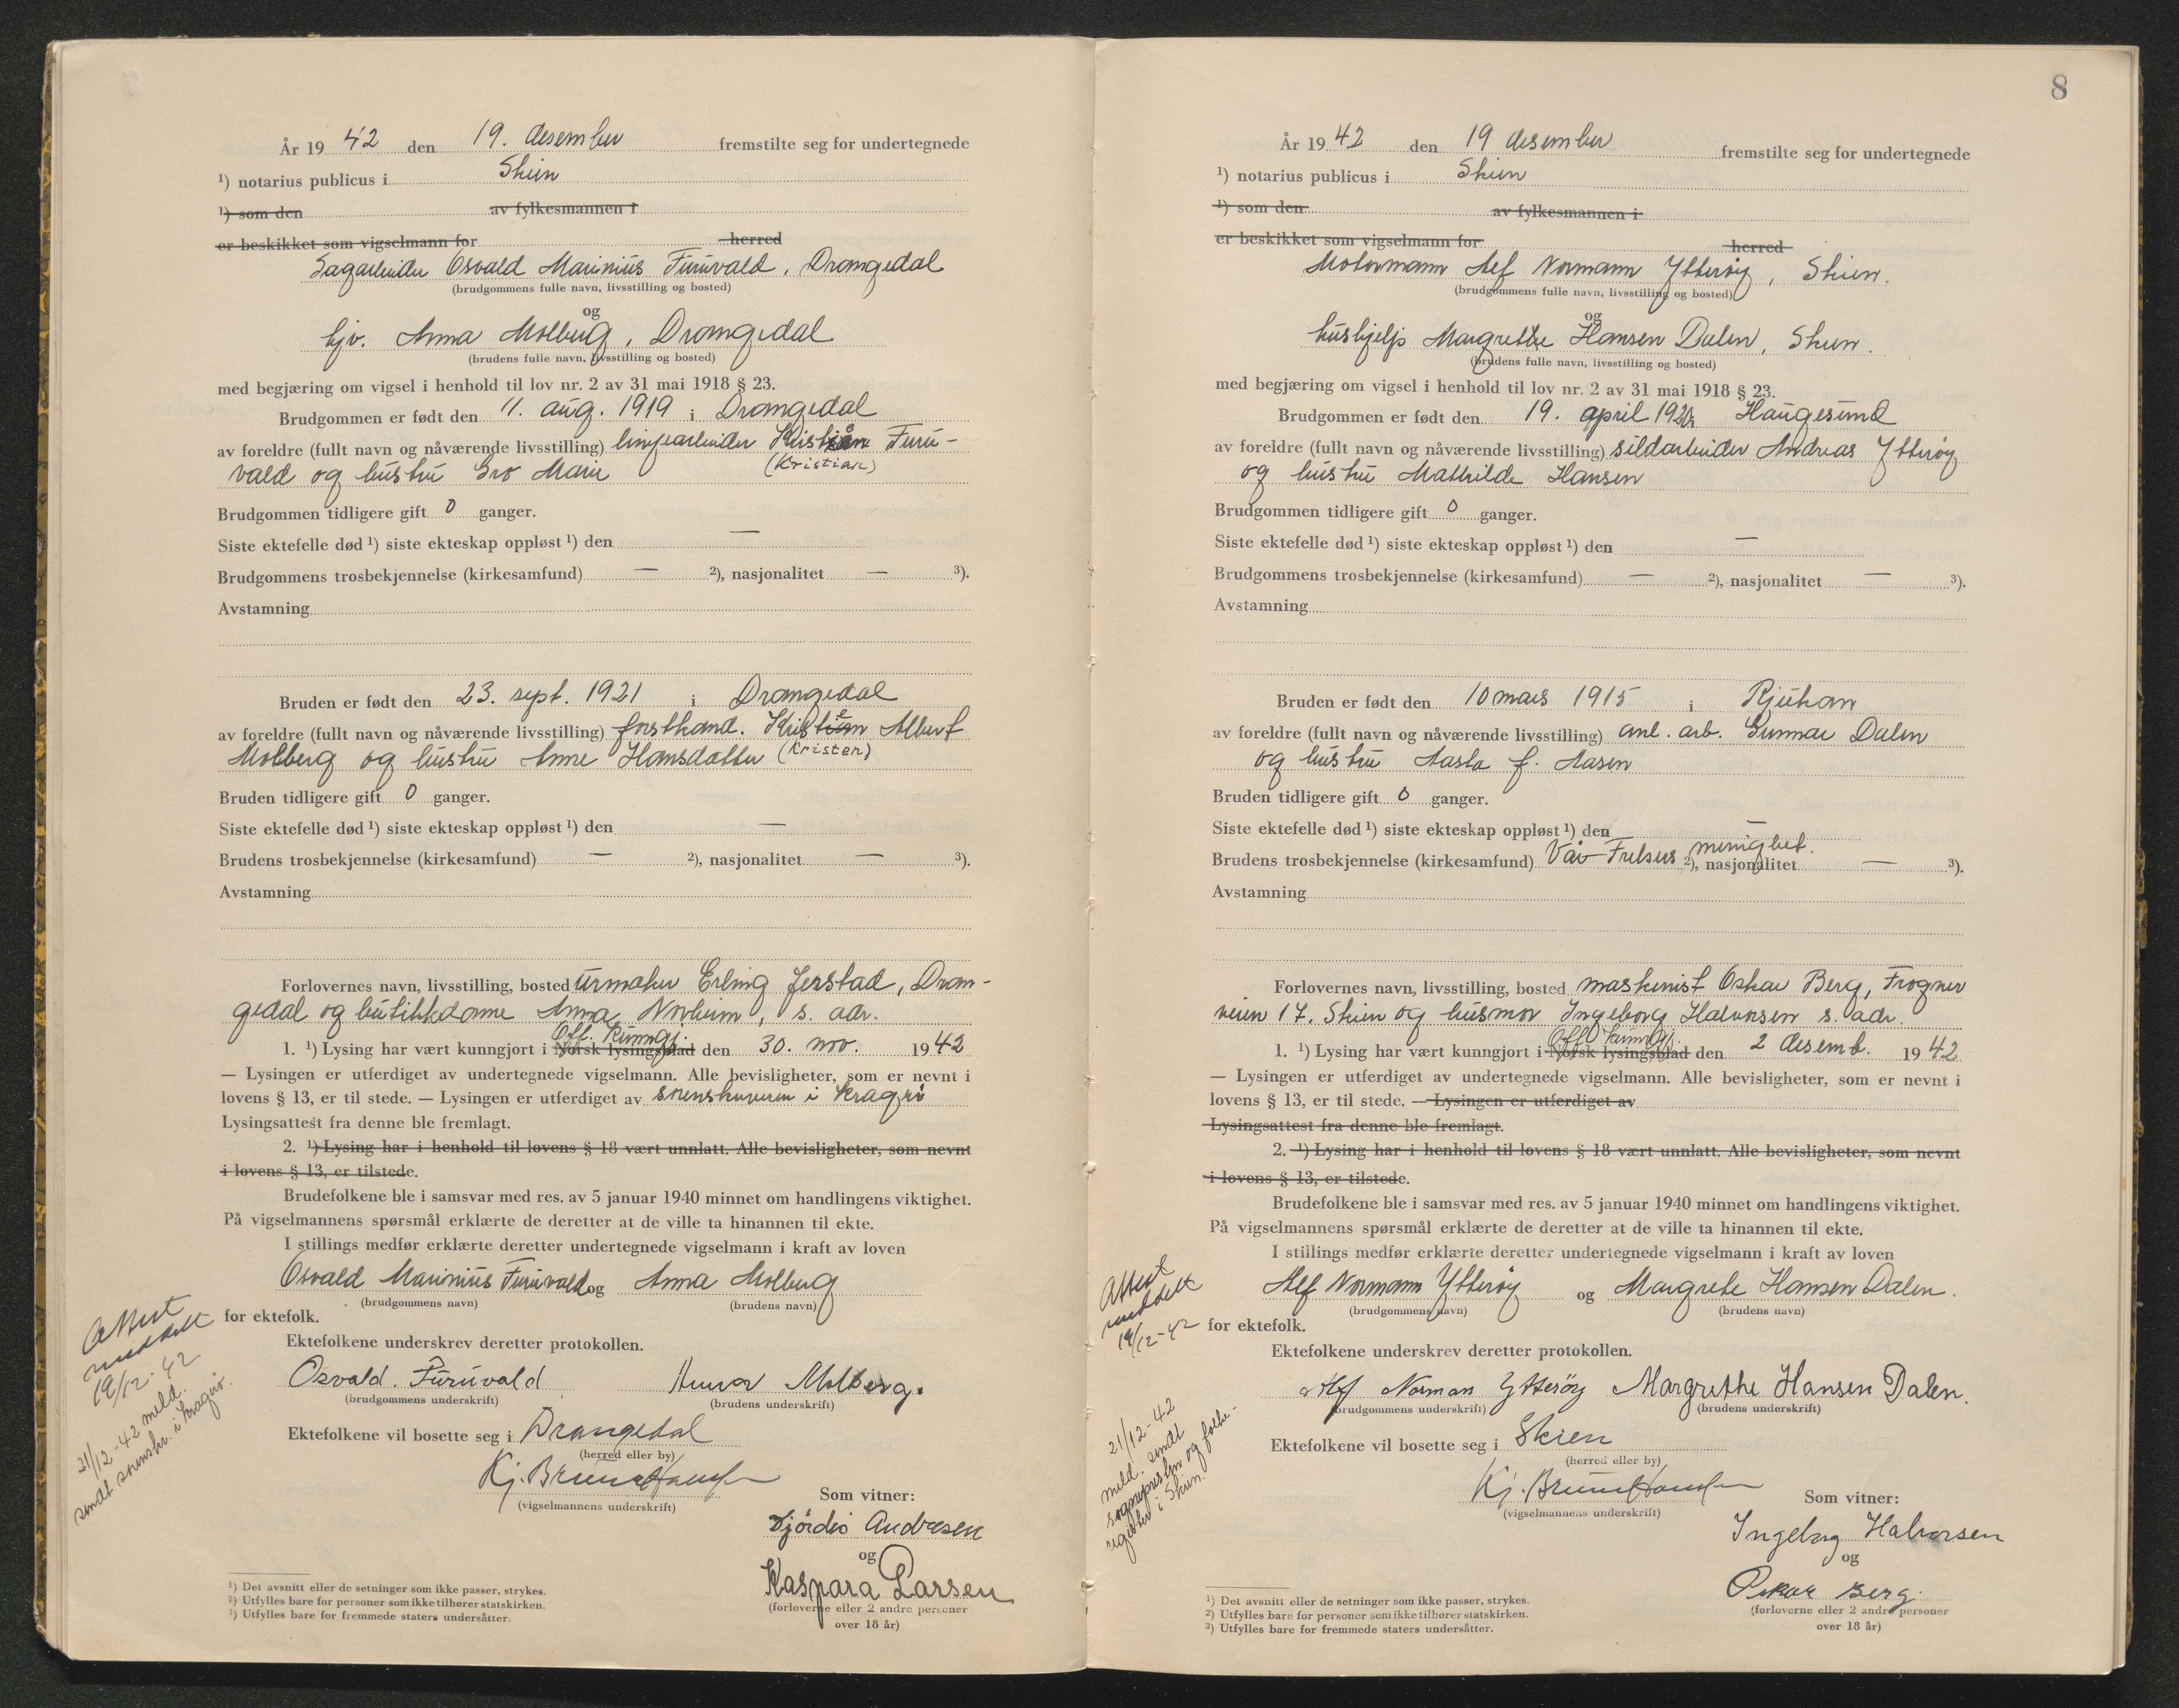 År 19 42 den 19. desember fremstilte seg for undertegnede
¹) notarius publicus i Skien
¹) som den av fylkesmannen i
er beskikket som vigselmann for herred
Sagarbeider Osvald Marinius Furuvald, Drangedal
(brudgommens fulle navn, livsstilling og bosted)
og
hjv. Anna Molberg, Drangedal
(brudens fulle navn, livsstilling og bosted)
med begjæring om vigsel i henhold til lov nr. 2 av 31 mai 1918 § 23.
Brudgommen er født den 11. aug. 1919 i Drangedal
av foreldre (fullt navn og nåværende livsstilling) linjearbeider Kristian Furu-
vald og hustru Gro Marie (Kristian)
Brudgommen tidligere gift 0 ganger.
Siste ektefelle død ¹) siste ekteskap oppløst ¹) den —
Brudgommens trosbekjennelse (kirkesamfund) — ²), nasjonalitet — ³).
Avstamning
Bruden er født den 23. sept. 1921 i Drangedal
av foreldre (fullt navn og nåværende livsstilling) forsthand. Kristen Albert
Molberg og hustru Anne Hansdatter (Kristen)
Bruden tidligere gift 0 ganger.
Siste ektefelle død ¹) siste ekteskap oppløst ¹) den —
Brudens trosbekjennelse (kirkesamfund) — ²), nasjonalitet — ³).
Avstamning
Forlovernes navn, livsstilling, bosted urmaker Erling Jerstad, Dran-
gedal og butikkdame Anna Norheim, s. adr.
Off. Kunngj.
1. ¹) Lysing har vært kunngjort i Norsk lysingsblad den 30. nov. 1942
— Lysingen er utferdiget av undertegnede vigselmann. Alle bevisligheter, som er nevnt i
lovens § 13, er til stede. — Lysingen er utferdiget av sorenskriveren i Kragerø
Lysingsattest fra denne ble fremlagt.
2. ¹) Lysing har i henhold til lovens § 18 vært unnlatt. Alle bevisligheter, som nevnt
i lovens § 13, er tilstede.
Brudefolkene ble i samsvar med res. av 5 januar 1940 minnet om handlingens viktighet.
På vigselmannens spørsmål erklærte de deretter at de ville ta hinannen til ekte.
I stillings medfør erklærte deretter undertegnede vigselmann i kraft av loven
Osvald Marinius Furuvald og Anna Molberg
(brudgommens navn) (brudens navn)
for ektefolk.
Ektefolkene underskrev deretter protokollen.
Osvald. Furuvald Anna Molberg.
(brudgommens underskrift) (brudens underskrift)
Ektefolkene vil bosette seg i Drangedal
(herred eller by)
Kj. Bruun Hansen
(vigselmannens underskrift)
Som vitner:
Hjördis Andresen
og
Kaspara Larsen
(forloverne eller 2 andre personer
over 18 år)
Attest
meddelt
19/12-42
21/12-42 meld.
sendt sorenskr. i Kragerø.
¹) Det avsnitt eller de setninger som ikke passer, strykes.
²) Utfylles bare for personer som ikke tilhører statskirken.
³) Utfylles bare for fremmede staters undersåtter.
8
År 19 42 den 19 desember fremstilte seg for undertegnede
¹) notarius publicus i Skien
¹) som den av fylkesmannen i
er beskikket som vigselmann for herred
Motormann Alf Normann Ytterøy, Skien.
(brudgommens fulle navn, livsstilling og bosted)
og
hushjelp Margrethe Hansen Dalen, Skien.
(brudens fulle navn, livsstilling og bosted)
med begjæring om vigsel i henhold til lov nr. 2 av 31 mai 1918 § 23.
Brudgommen er født den 19. april i Haugesund
av foreldre (fullt navn og nåværende livsstilling) sildarbeider Andreas Ytterøy
og hustru Mathilde Hansen
Brudgommen tidligere gift 0 ganger.
Siste ektefelle død ¹) siste ekteskap oppløst ¹) den —
Brudgommens trosbekjennelse (kirkesamfund) — ²), nasjonalitet — ³).
Avstamning
Bruden er født den 10 mars 1915 i Rjukan
av foreldre (fullt navn og nåværende livsstilling) anl. arb. Gunnar Dalen
og hustru Aasta f. Aasen
Bruden tidligere gift 0 ganger.
Siste ektefelle død ¹) siste ekteskap oppløst ¹) den —
Brudens trosbekjennelse (kirkesamfund) Vår Frelsers menighet. ²), nasjonalitet — ³).
Avstamning
Forlovernes navn, livsstilling, bosted maskinist Oskar Berg, Frogner
veien 17. Skien og husmor Ingeborg Halvorsen s. adr.
Off. Kunngj.
1. ¹) Lysing har vært kunngjort i Norsk lysingsblad den 2 desemb. 1942
— Lysingen er utferdiget av undertegnede vigselmann. Alle bevisligheter, som er nevnt i
lovens § 13, er til stede. — Lysingen er utferdiget av
Lysingsattest fra denne ble fremlagt.
2. ¹) Lysing har i henhold til lovens § 18 vært unnlatt. Alle bevisligheter, som nevnt
i lovens § 13, er tilstede.
Brudefolkene ble i samsvar med res. av 5 januar 1940 minnet om handlingens viktighet.
På vigselmannens spørsmål erklærte de deretter at de ville ta hinannen til ekte.
I stillings medfør erklærte deretter undertegnede vigselmann i kraft av loven
Alf Normann Ytterøy og Margrete Hansen Dalen.
(brudgommens navn) (brudens navn)
for ektefolk.
Ektefolkene underskrev deretter protokollen.
Alf Norman Ytteröy Margrethe Hansen Dalen.
(brudgommens underskrift) (brudens underskrift)
Ektefolkene vil bosette seg i Skien
(herred eller by)
Kj. Bruun Hansen
(vigselmannens underskrift)
Som vitner:
Ingeborg Halvorsen
og
Oskar Berg.
(forloverne eller 2 andre personer
over 18 år)
Attest
meddelt
19/12-42
21/12-42
meld. sendt
sognepresten og folke-
register i Skien.
¹) Det avsnitt eller de setninger som ikke passer, strykes.
²) Utfylles bare for personer som ikke tilhører statskirken.
³) Utfylles bare for fremmede staters undersåtter.